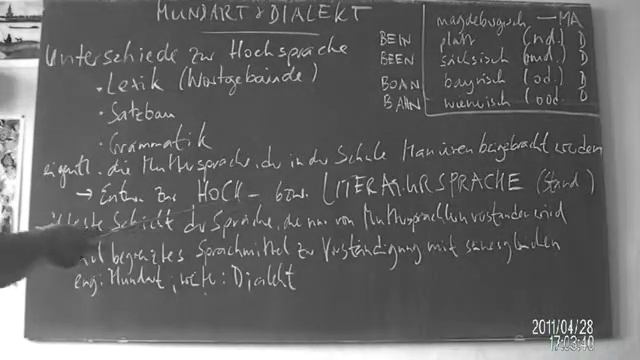 MUNDART & DIALEKT
Unterschiede zur Hochsprache
· Lexik (Wortgebäude)
· Satzbau
· Grammatik
BEIN
BEEN
BOAN
BAHN
magdeburgisch — MA
platt (nd.) D
sächsisch (md.) D
bayrisch (od.) D
wienerisch (ood. D
eigentl. die Muttersprache, der in der Schule Manieren beigebracht werden
→ Entw. zur HOCH- bzw. LITERATURSPRACHE (Stand)
Schicht der Sprache, die nur von Muttersprachlern verstanden wird
begrenztes Sprachmittel zur Verständigung mit seinesgleichen
eng: Mundart, weite: Dialekt
2011/04/28
17:03:40